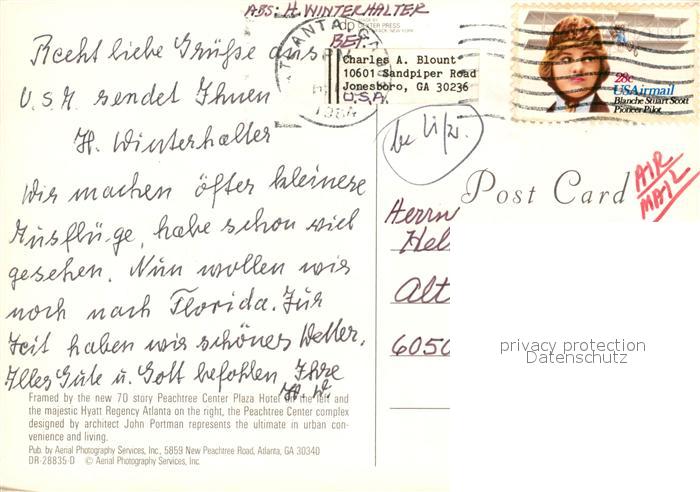 ABS: H. WINTERHALTER
BEI:
Charles A. Blount
10601 Sandpiper Road
Jonesboro, GA 30236
U.S.A.
ATLANTA GA
1984
28c
USAirmail
Blanche Stuart Scott
Pioneer Pilot
Recht liebe Grüße aus
U.S.A. sendet Ihnen
H. Winterhalter
Wir machen öfter kleinere
Ausflüge, habe schon viel
gesehen. Nun wollen wir
noch nach Florida. Zur
Zeit haben wir schönes Wetter.
Alles Gute u. Gott befohlen Ihre
H. W.
Post Card
AIR
MAIL
Herrn
Hel
Alt
6050
privacy protection
Datenschutz
Framed by the new 70 story Peachtree Center Plaza Hotel on the left and
the majestic Hyatt Regency Atlanta on the right, the Peachtree Center complex
designed by architect John Portman represents the ultimate in urban con-
venience and living.
Pub. by Aerial Photography Services, Inc., 5859 New Peachtree Road, Atlanta, GA 30340
DR-28835-D © Aerial Photography Services, Inc.